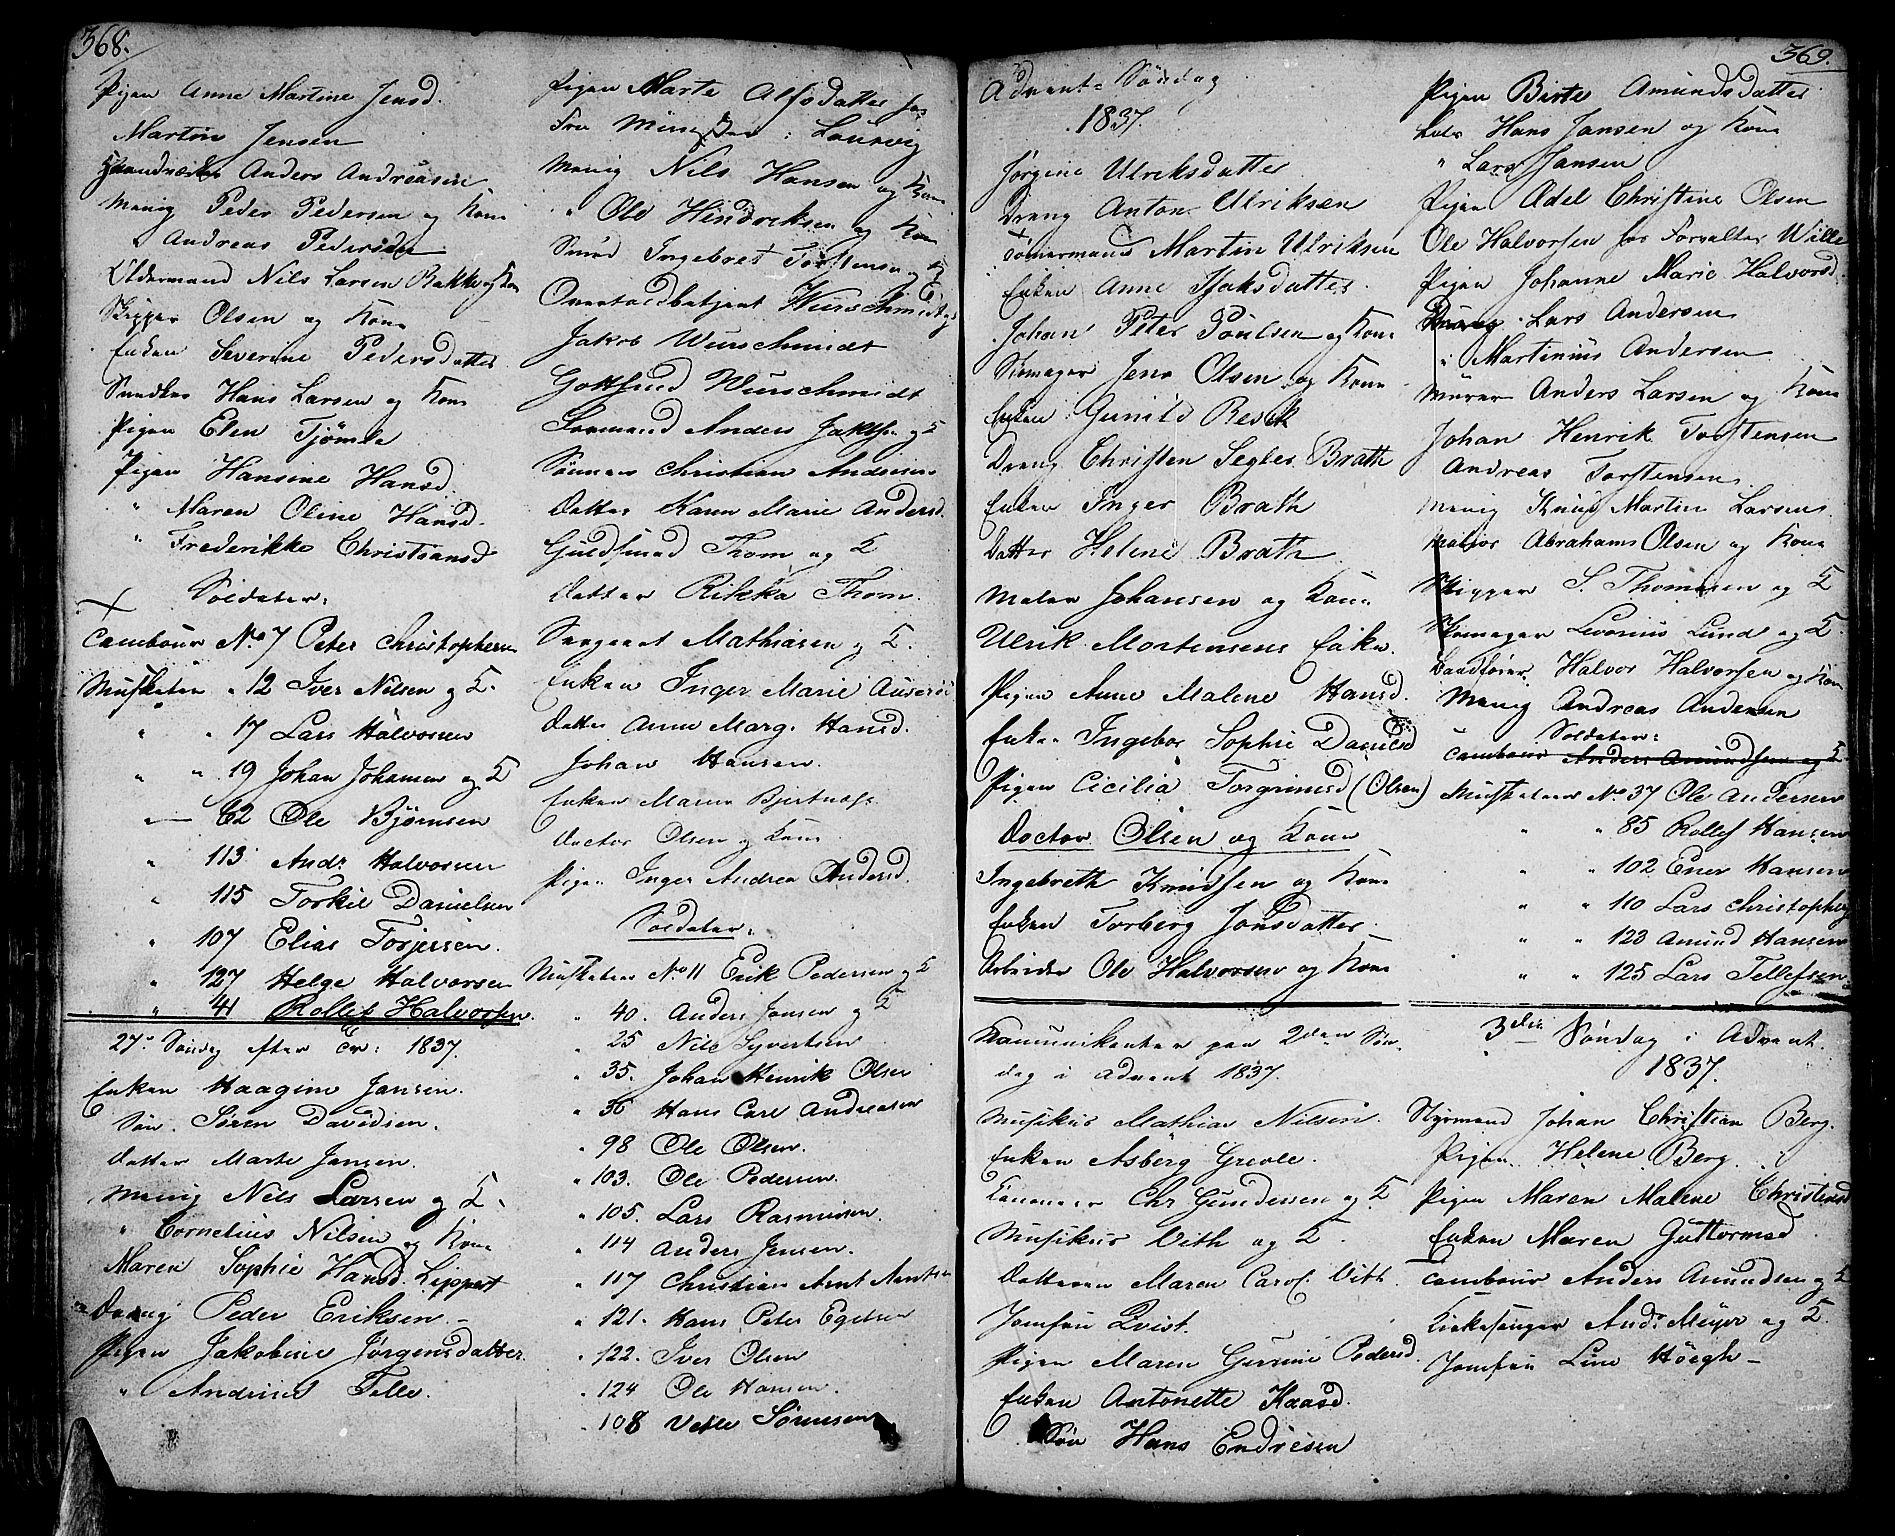 368.
Pigen Anne Martine Jensd.
Martin Jensen
Haandværker Anders Andreasen
Menig Peder Pedersen og Kone
" Andreas Pedersen
Oldermand Nils Larsen Bakke og Kone
Skipper Olsen og Kone
Enken Severine Pedersdatter
Snedker Hans Larsen og Kone
Pigen Elen Tjömle
Pigen Hansine Hansd.
" Maren Oline Hansd.
" Frederikke Christiansd
Soldater:
Tambour No 7 Peter Christophersen
Musketeer " 12 Iver Nilsen og K.
" " 17 Lars Halvorsen
" " 19 Johan Johansen og K
" 62 Ole Bjørnsen
" 113 Andr. Halvorsen
" 115 Torkil Danielsen
" 107 Elias Torjersen.
" 127 Helge Halvorsen
" 41 Rollef Halvorsen.
27de Søndag efter Tr: 1837.
Enken Haagine Jansen.
Søn. Søren Davidsen.
Datter Marte Jansen.
Menig Nils Larsen og K.
" Cornelius Nilsen og Kone
Maren Sophie Hansd. Lippert
Dreng Peder Eriksen
Pigen Jakobine Jørgensdatter.
" Andrine Telle.
Pigen Marte Alfsdatter
Fru Münster i Laurvig
Menig Nils Hansen og Kone
" Ole Hindriksen og Kone
Smed Ingebret Torstensen og K
Overtoldbetjent Wurschmidt og
Jakob Wurschmidt
Gottfried Wurschmidt
Formand Anders Jakobsen og K
Sønnen Christian Andersen
Datter Karen Marie Andersd.
Guldsmed Thom og K
Datter Rikka Thom.
Sergeant Mathiasen og K.
Enken Inger Marie
Datter Anne Marg. Hansd.
Johan Hansen.
Enken Maren Bjertnæs.
Doctor Olsen og Kone
Pigen Inger Andrea Andersd.
Soldater.
Musketeer No 11 Erik Pedersen og K
" 40. Anders Jansen og K
" 25 Nils Syvertsen
" 35. Johan Henrik Olsen
" 36 Hans Carl Andreasen
" 98 Ole Olsen.
" 103. Ole Pedersen.
" 105. Lars Rasmusen.
" 114 Anders Jensen.
" 117 Christian Arnt Arntsen
" 121. Hans Peter Egelsen
" 122. Iver Olsen
" 124 Ole Hansen.
" 108 Vetle Sørensen
369.
Advents Søndag
1837.
Jørgine Ulriksdatter
Dreng Anton Ulriksen
Tømermand Martin Ulriksen
Enken Anne Isaksdatter.
Johan Peter Poulsen og Kone
Skomager Jens Olsen og Kone
Enken Gunild Resek
Dreng Christen Segler Brath
Enken Inger Brath
Datter Helene Brath
Maler Johansen og Kone
Ulrik Mortensens Enke.
Pigen Anne Malene Hansd.
Enken Ingebor Sophie Danielsd
Pigen Cicilia Torgrimsd (Olsen)
Doctor Olsen og Kone
Ingebreth Knudsen og Kone
Enken Torberg Jonsdatter.
Arbeider Ole Halvorsen og Kone
Kommunikanter paa 2den Søn-
dag i Advent 1837.
Musikus Mathias Nilsen.
Enken Asberg Greole.
Chr Gundersen og K.
Musikus Vith og K.
Datteren Maren Carol. Vith
Jomfru Qvist.
Pigen Maren Gurine Pedersd.
Enken Antonette Haasd.
Søn Hans Endresen
Pigen Birte Amundsdatter
Lods Hans Jansen og Kone
" Lars Jansen
Pigen Adel Christine Olsen
Ole Halvorsen hos Forvalter Wille
Pigen Johanne Marie Halvorsd.
Dreng Lars Andersen
" Martinius Andersen
Murer Anders Larsen og Kone
Johan Henrik Torstensen
Andreas Torstensen
Menig Knud Martin Larsen.
Matros Abraham Olsen og Kone
Skipper S. Thomesen og K
Skomager Severius Lund og K.
Vandfører Halvor Halvorsen og Kone
Menig Andreas Andersen
Soldater:
Tambour Anders Amundsen og K.
Musketeer No 37 Ole Andersen
" " 85 Rollef Hansen
" " 102 Ener Hansen
" " 110 Lars Christophers
" " 123 Amund Hansen
" " 125 Lars Tellefsen
3die Søndag i Advent.
1837.
Styrmand Johan Christian Berg.
Pigen Helene Berg.
Pigen Maren Malene Christensd
Enken Maren Guttormsd.
Tambour Anders Amundsen og K
Kirkesanger Andr. Meyer og K.
Jomfru Line Høegh